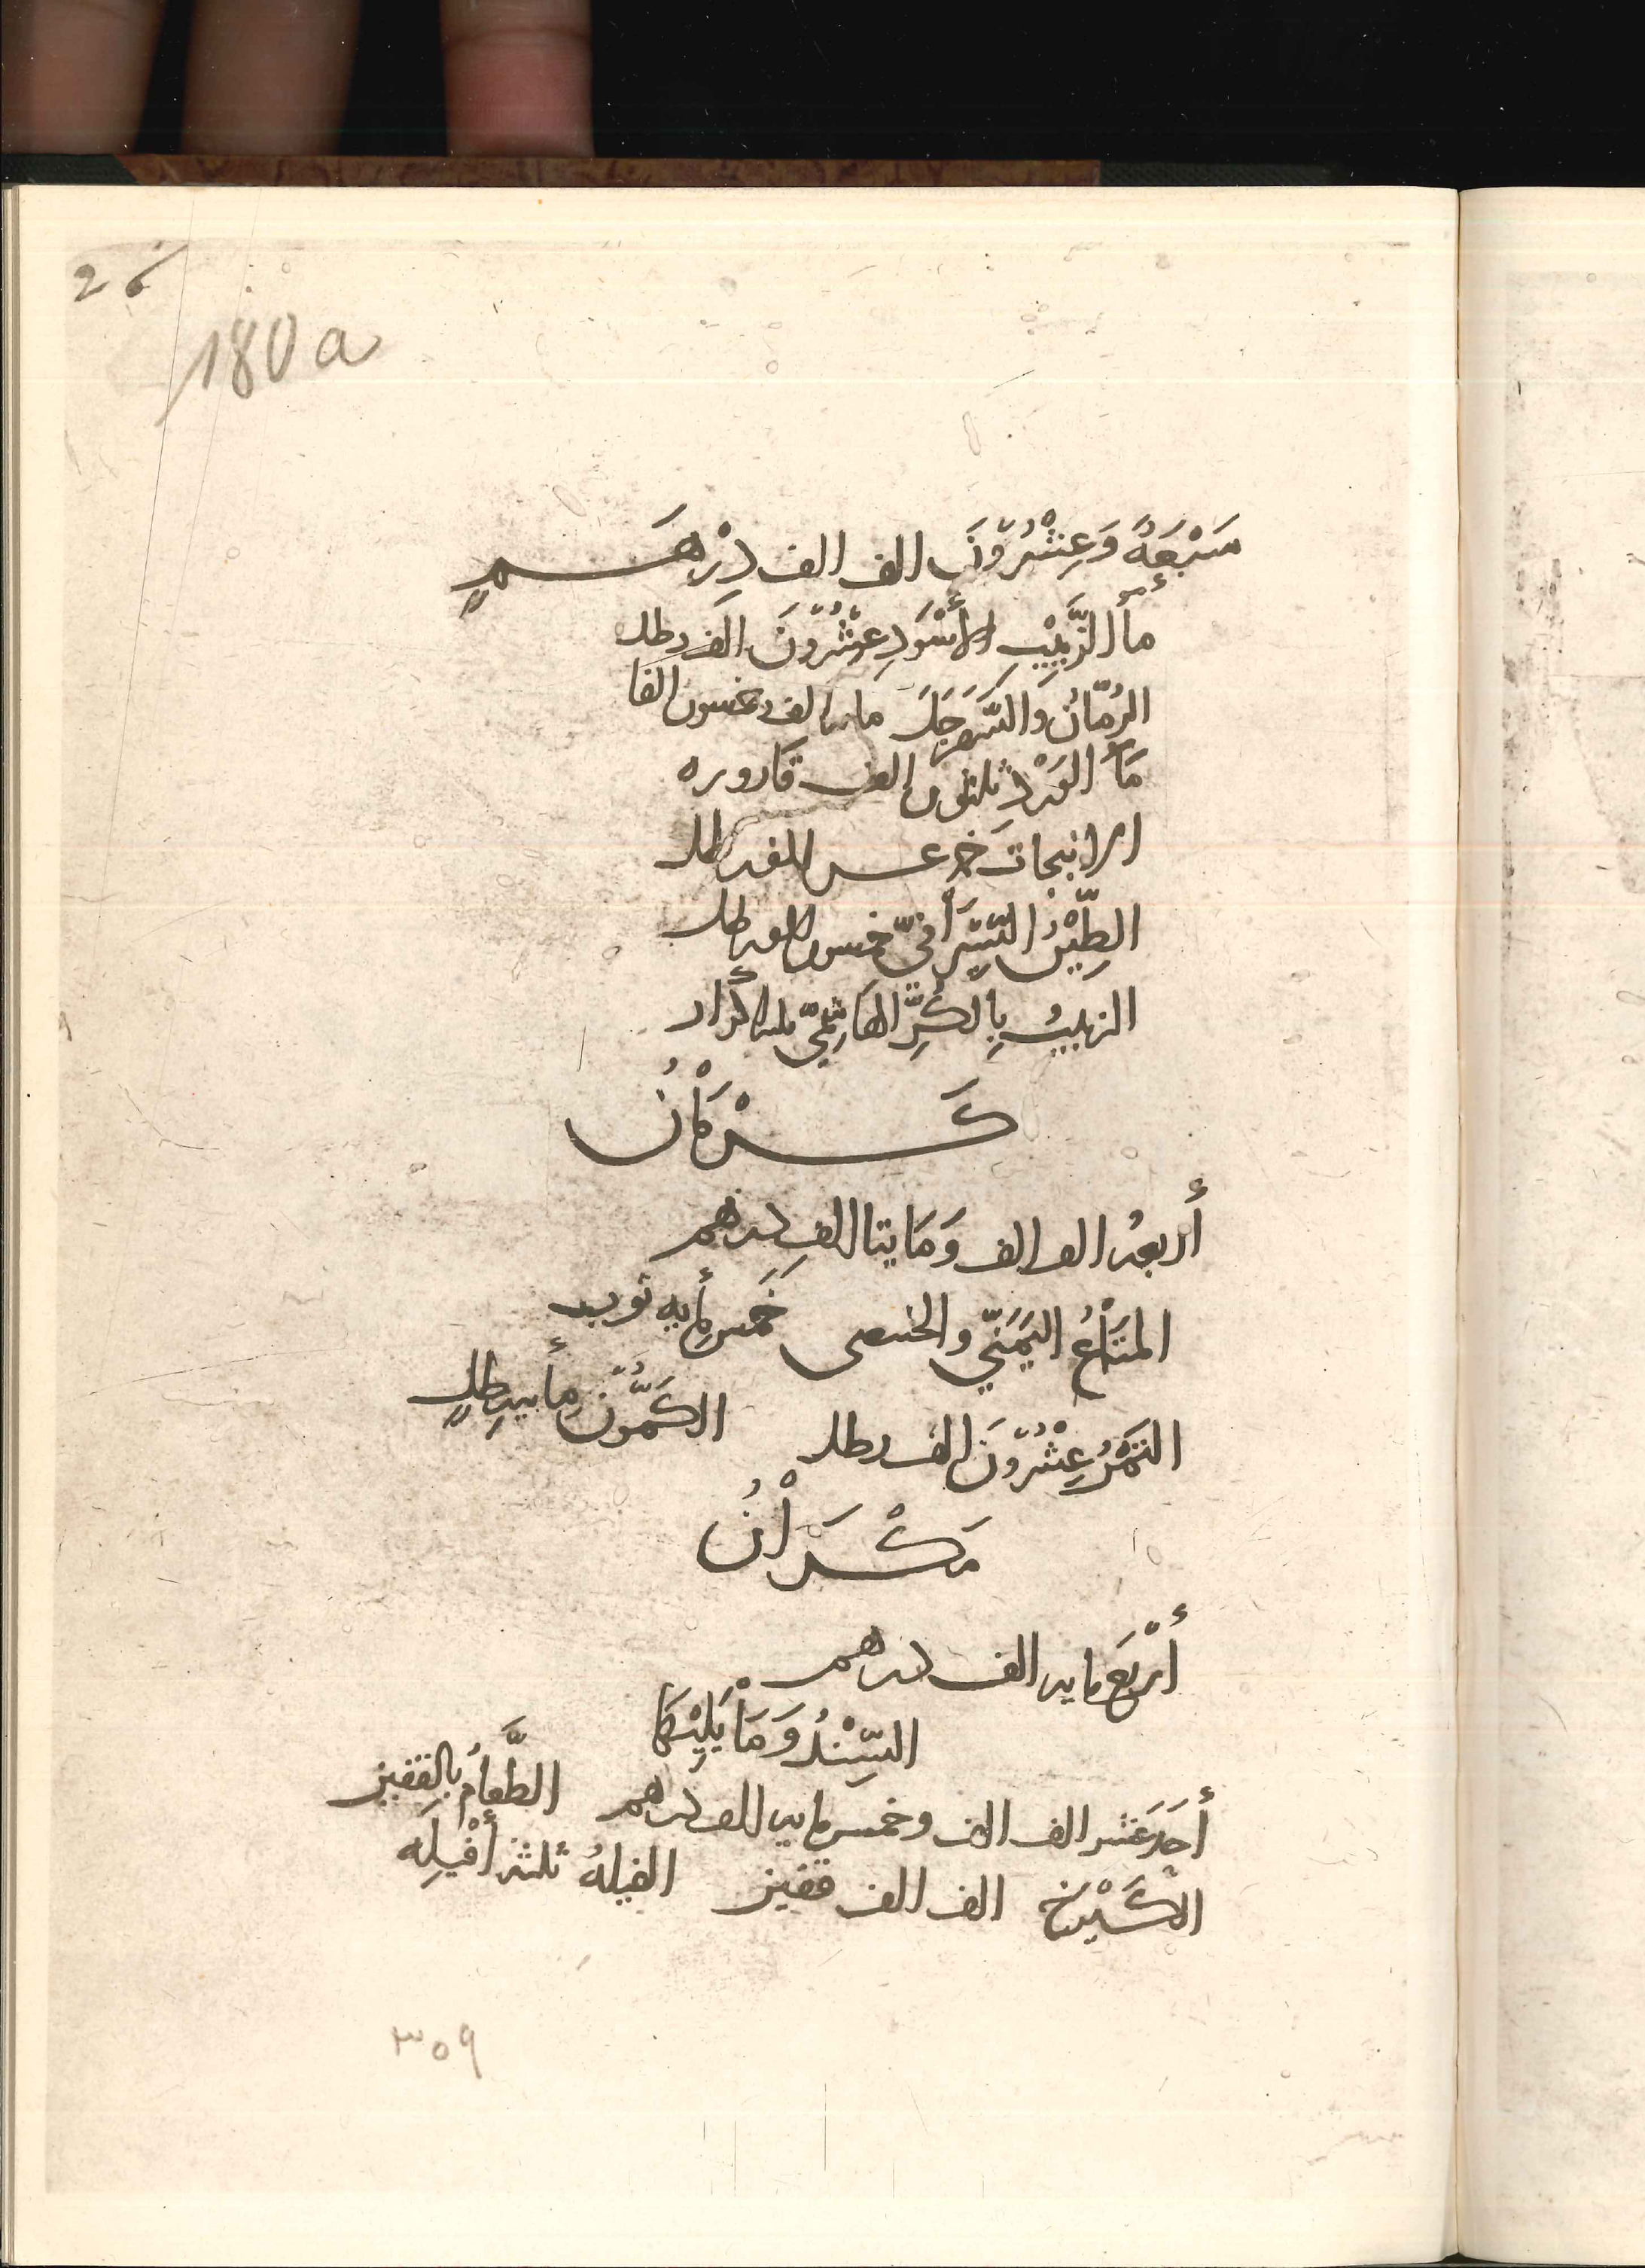 26
180a
سَبْعَةٌ وَعِشْرُوْنَ الف الف دِرْهَمٍ
مأ الزَّبِيْبِ الأَسْوَدِ عِشْرُوْنَ الف رطل
الرُمّانُ وَالسَّفَرْجَلَ مايتا الف وخمسون الفا
مَآ الوَرْدِ ثلثون الف قاروره
الانبجات خمسة عشر الف رطل
الطِّيْنُ السِّيْرَافِيّ خمسون الف رطل
الزبيبُ بِالكُرِّ الهَاشِمِيّ ثلثه أكرار
كَرْمَانُ
أربعة الف الف وَمَايتا الفِ درهم
المتَاعُ اليَمَنِيّ والخبيصى خَمس مأيه ثوب
التَمْرُ عِشْرُوْنَ الف رطل الكَمُّوْن مأيه رطلٍ
مَكْرَانُ
أَرْبَع مايه الف درهم
السِّنْدُ وَمَا يَلِيْهَا
أحَدَ عَشر الف الف وخمس مايه الف درهم الطَّعَامُ بالقفيز
الكَيْرَخ الف الف قفيز الفيلةُ ثلثة أَفْيِلَه
٣٥٩